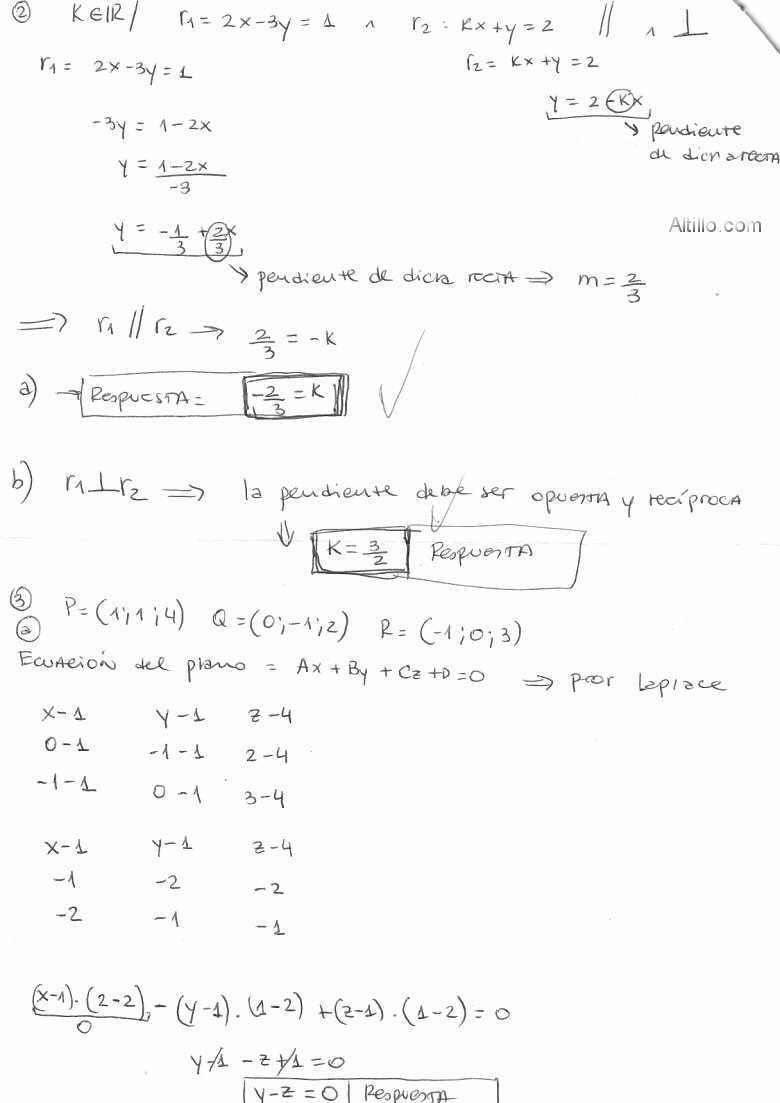 ② K∈ℝ / r1 = 2x-3y = 1 ∧ r2 : Kx+y = 2 // ∧ ⊥
r1 = 2x-3y = 1
r2 = Kx+y = 2
y = 2 -Kx
→ pendiente de dicha recta
-3y = 1-2x
y = 1-2x / -3
Altillo.com
y = -1/3 + 2/3 x
→ pendiente de dicha recta ⇒ m = 2/3
⇒ r1 // r2 → 2/3 = -K
a) → Respuesta = -2/3 = K
b) r1 ⊥ r2 ⇒ la pendiente debe ser opuesta y recíproca
⇓ K = 3/2 Respuesta
③ P = (1;1;4) Q = (0;-1;2) R = (-1;0;3)
ⓐ
Ecuación del plano = Ax + By + Cz + D = 0 ⇒ por Laplace
x-1 y-1 z-4
0-1 -1-1 2-4
-1-1 0-1 3-4
x-1 y-1 z-4
-1 -2 -2
-2 -1 -1
(x-1).(2-2) - (y-1).(1-2) + (z-1).(1-2) = 0
0
y-1 - z+1 = 0
y-z = 0 Respuesta